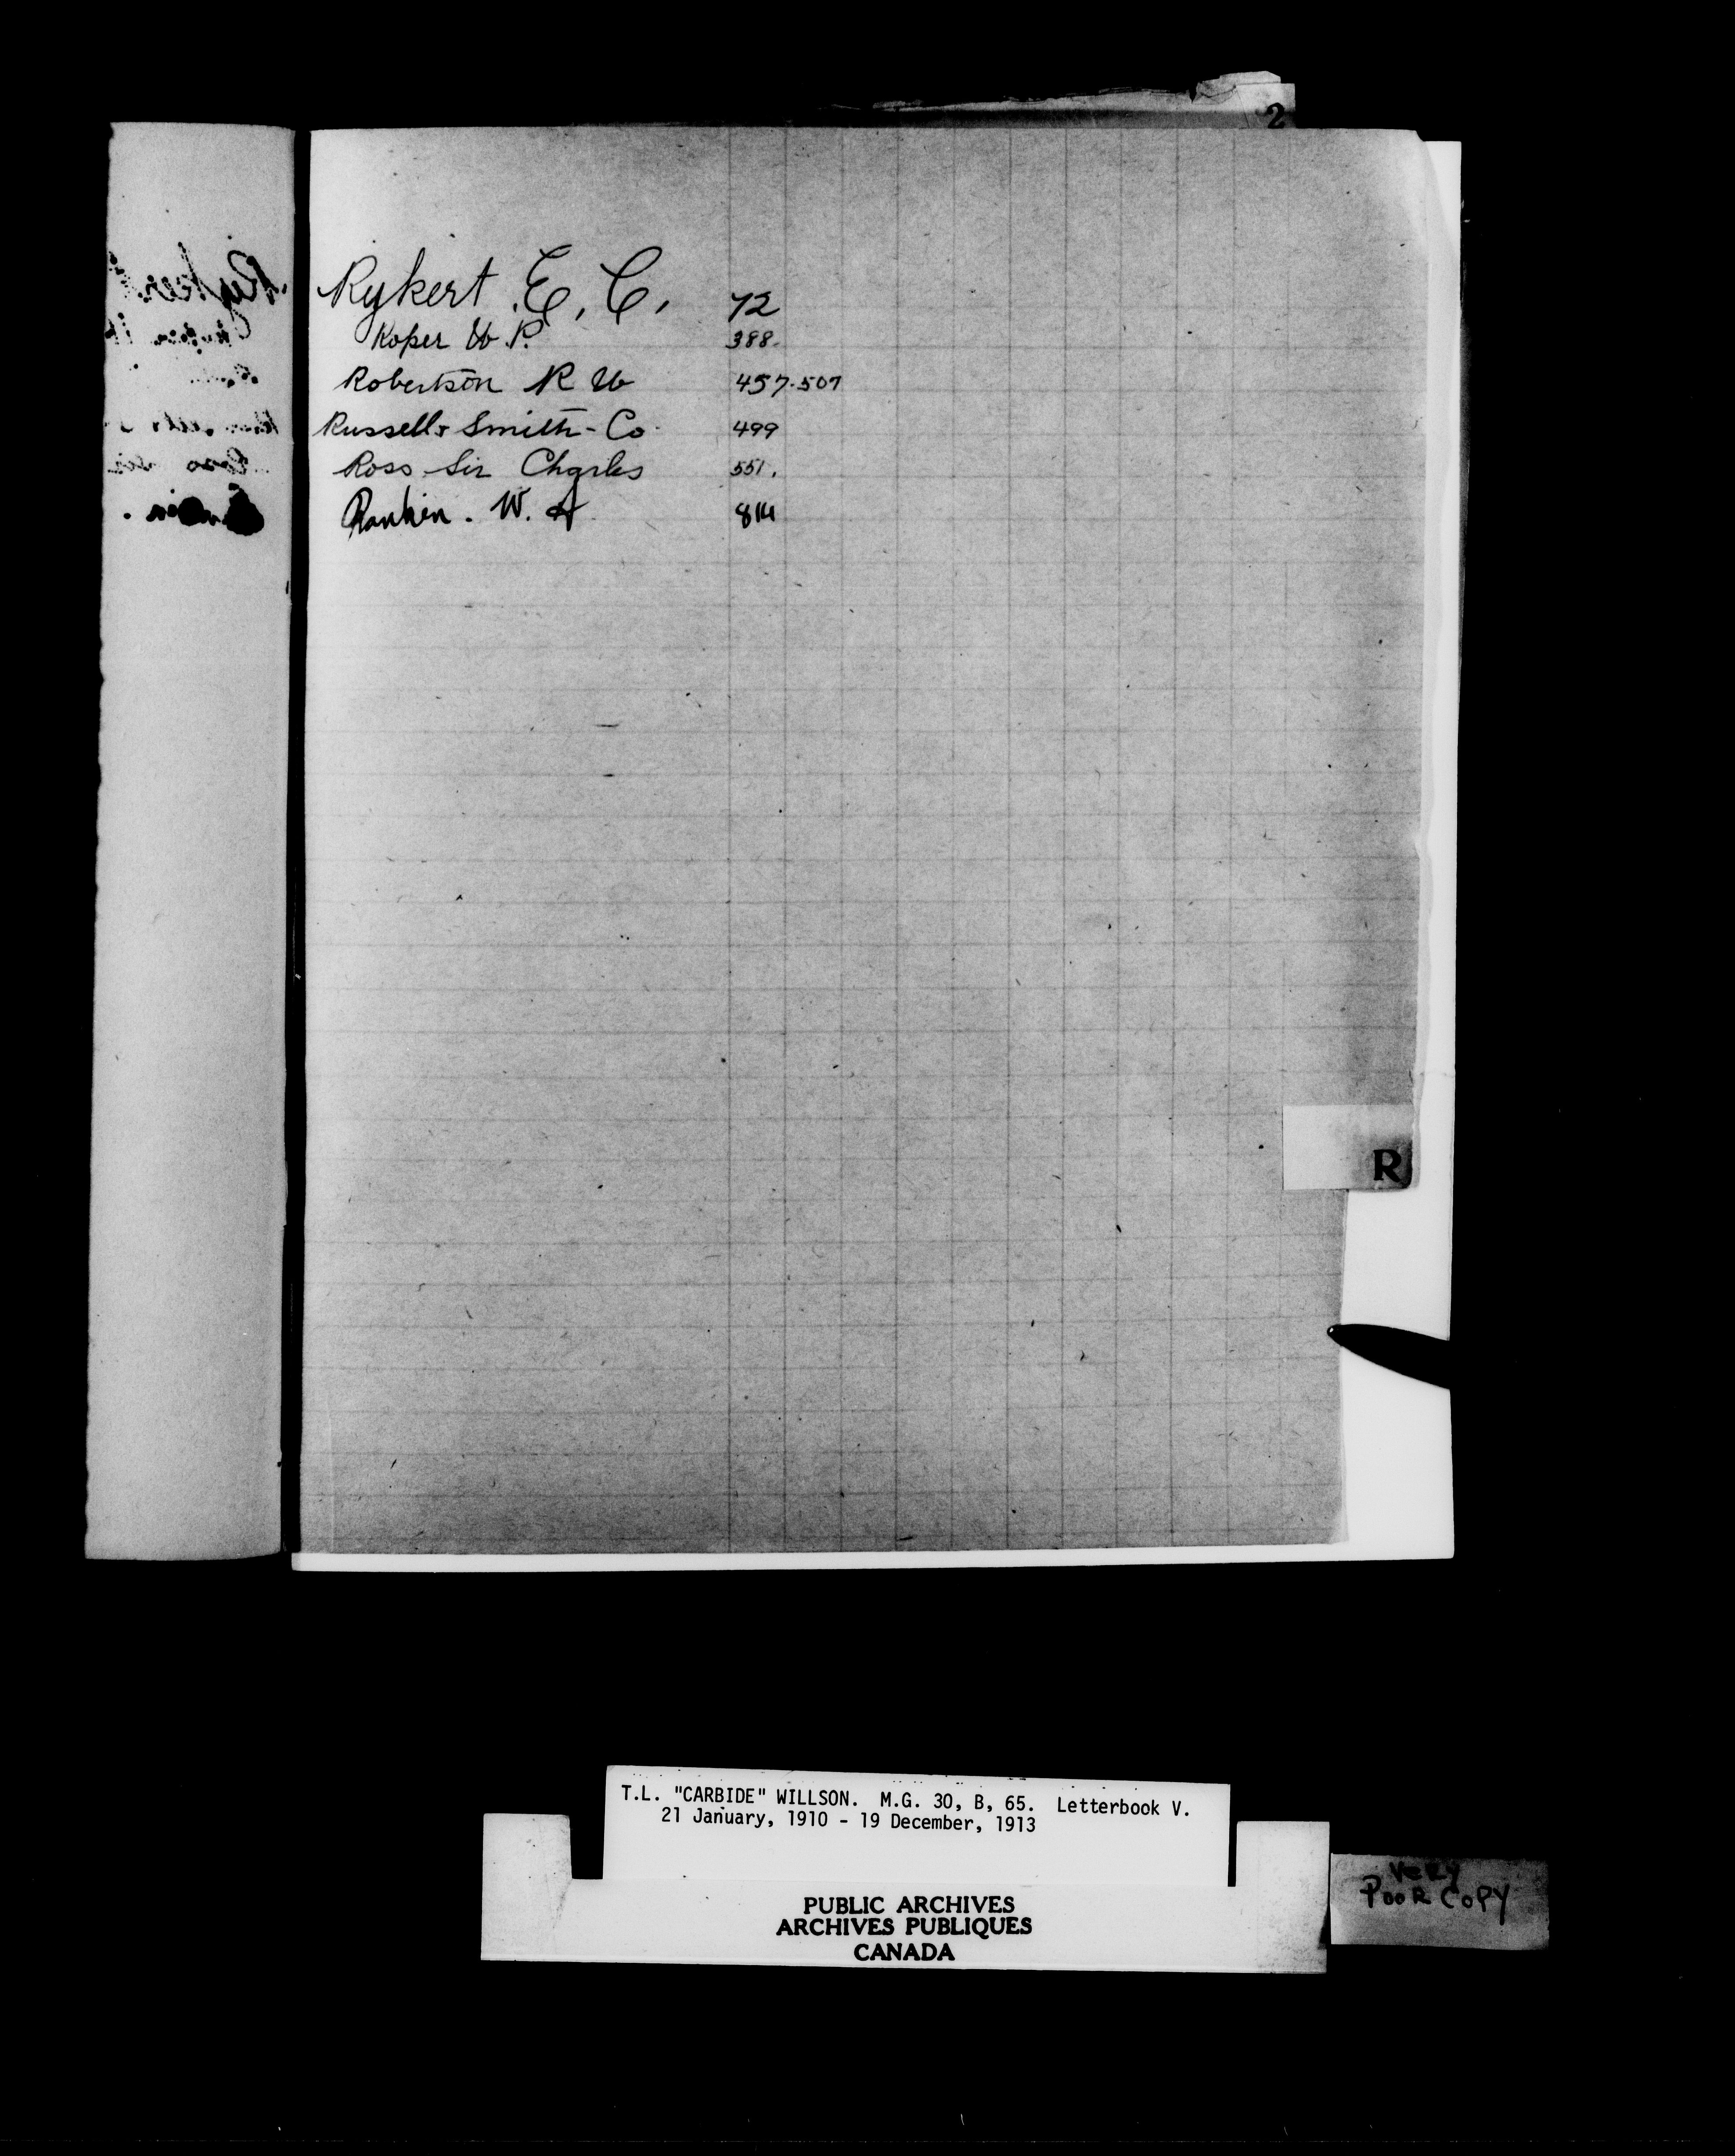 2
Rykert, E, C, 72
Roper W. P. 388.
Robertson R W 457.507
Russell & Smith - Co. 499
Ross Sir Charles 551.
Rankin. W. A 814
R
T.L. "CARBIDE" WILLSON. M.G. 30, B, 65. Letterbook V.
21 January, 1910 - 19 December, 1913
PUBLIC ARCHIVES
ARCHIVES PUBLIQUES
CANADA
VERY
POOR COPY